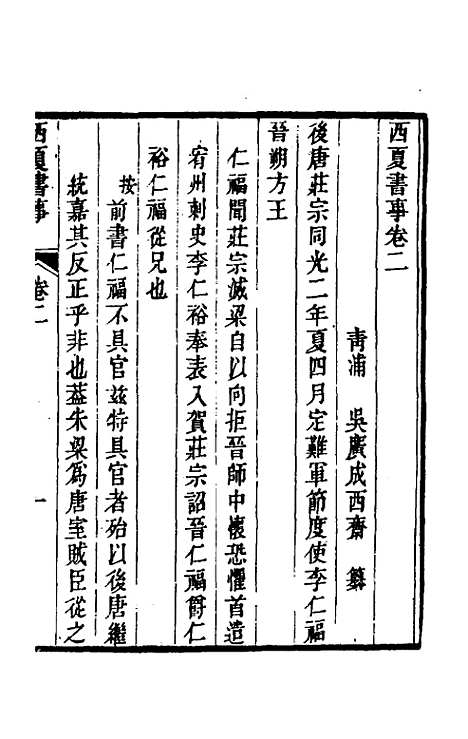 西夏書事卷二
青浦　吳廣成西齋　纂
後唐莊宗同光二年夏四月定難軍節度使李仁福
晉朔方王
仁福聞莊宗滅梁自以向拒晉師中懷恐懼首造
宥州刺史李仁裕奉表入賀莊宗詔晉仁福爵仁
裕仁福從兄也
按前書仁福不具官茲特具官者殆以後唐繼
統嘉其反正乎非也葢朱梁爲唐室賊臣從之
西夏書事
卷二
一